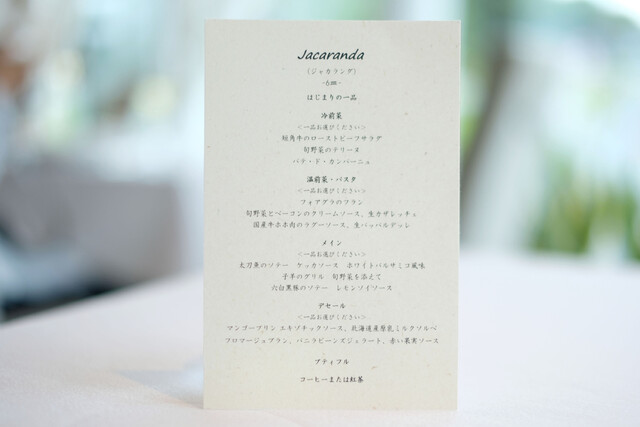 Jacaranda
（ジャカランダ）
-6皿-
はじまりの一品
冷前菜
＜一品お選びください＞
短角牛のローストビーフサラダ
旬野菜のテリーヌ
パテ・ド・カンパーニュ
温前菜・パスタ
＜一品お選びください＞
フォアグラのフラン
旬野菜とベーコンのクリームソース、生カザレッチェ
国産牛ホホ肉のラグーソース、生パッパルデッレ
メイン
＜一品お選びください＞
太刀魚のソテー　ケッカソース　ホワイトバルサミコ風味
子羊のグリル　旬野菜を添えて
六白黒豚のソテー　レモンソイソース
デセール
＜一品お選びください＞
マンゴープリン エキゾチックソース、北海道産厚乳ミルクソルベ
フロマージュブラン、バニラビーンズジェラート、赤い果実ソース
プティフル
コーヒーまたは紅茶